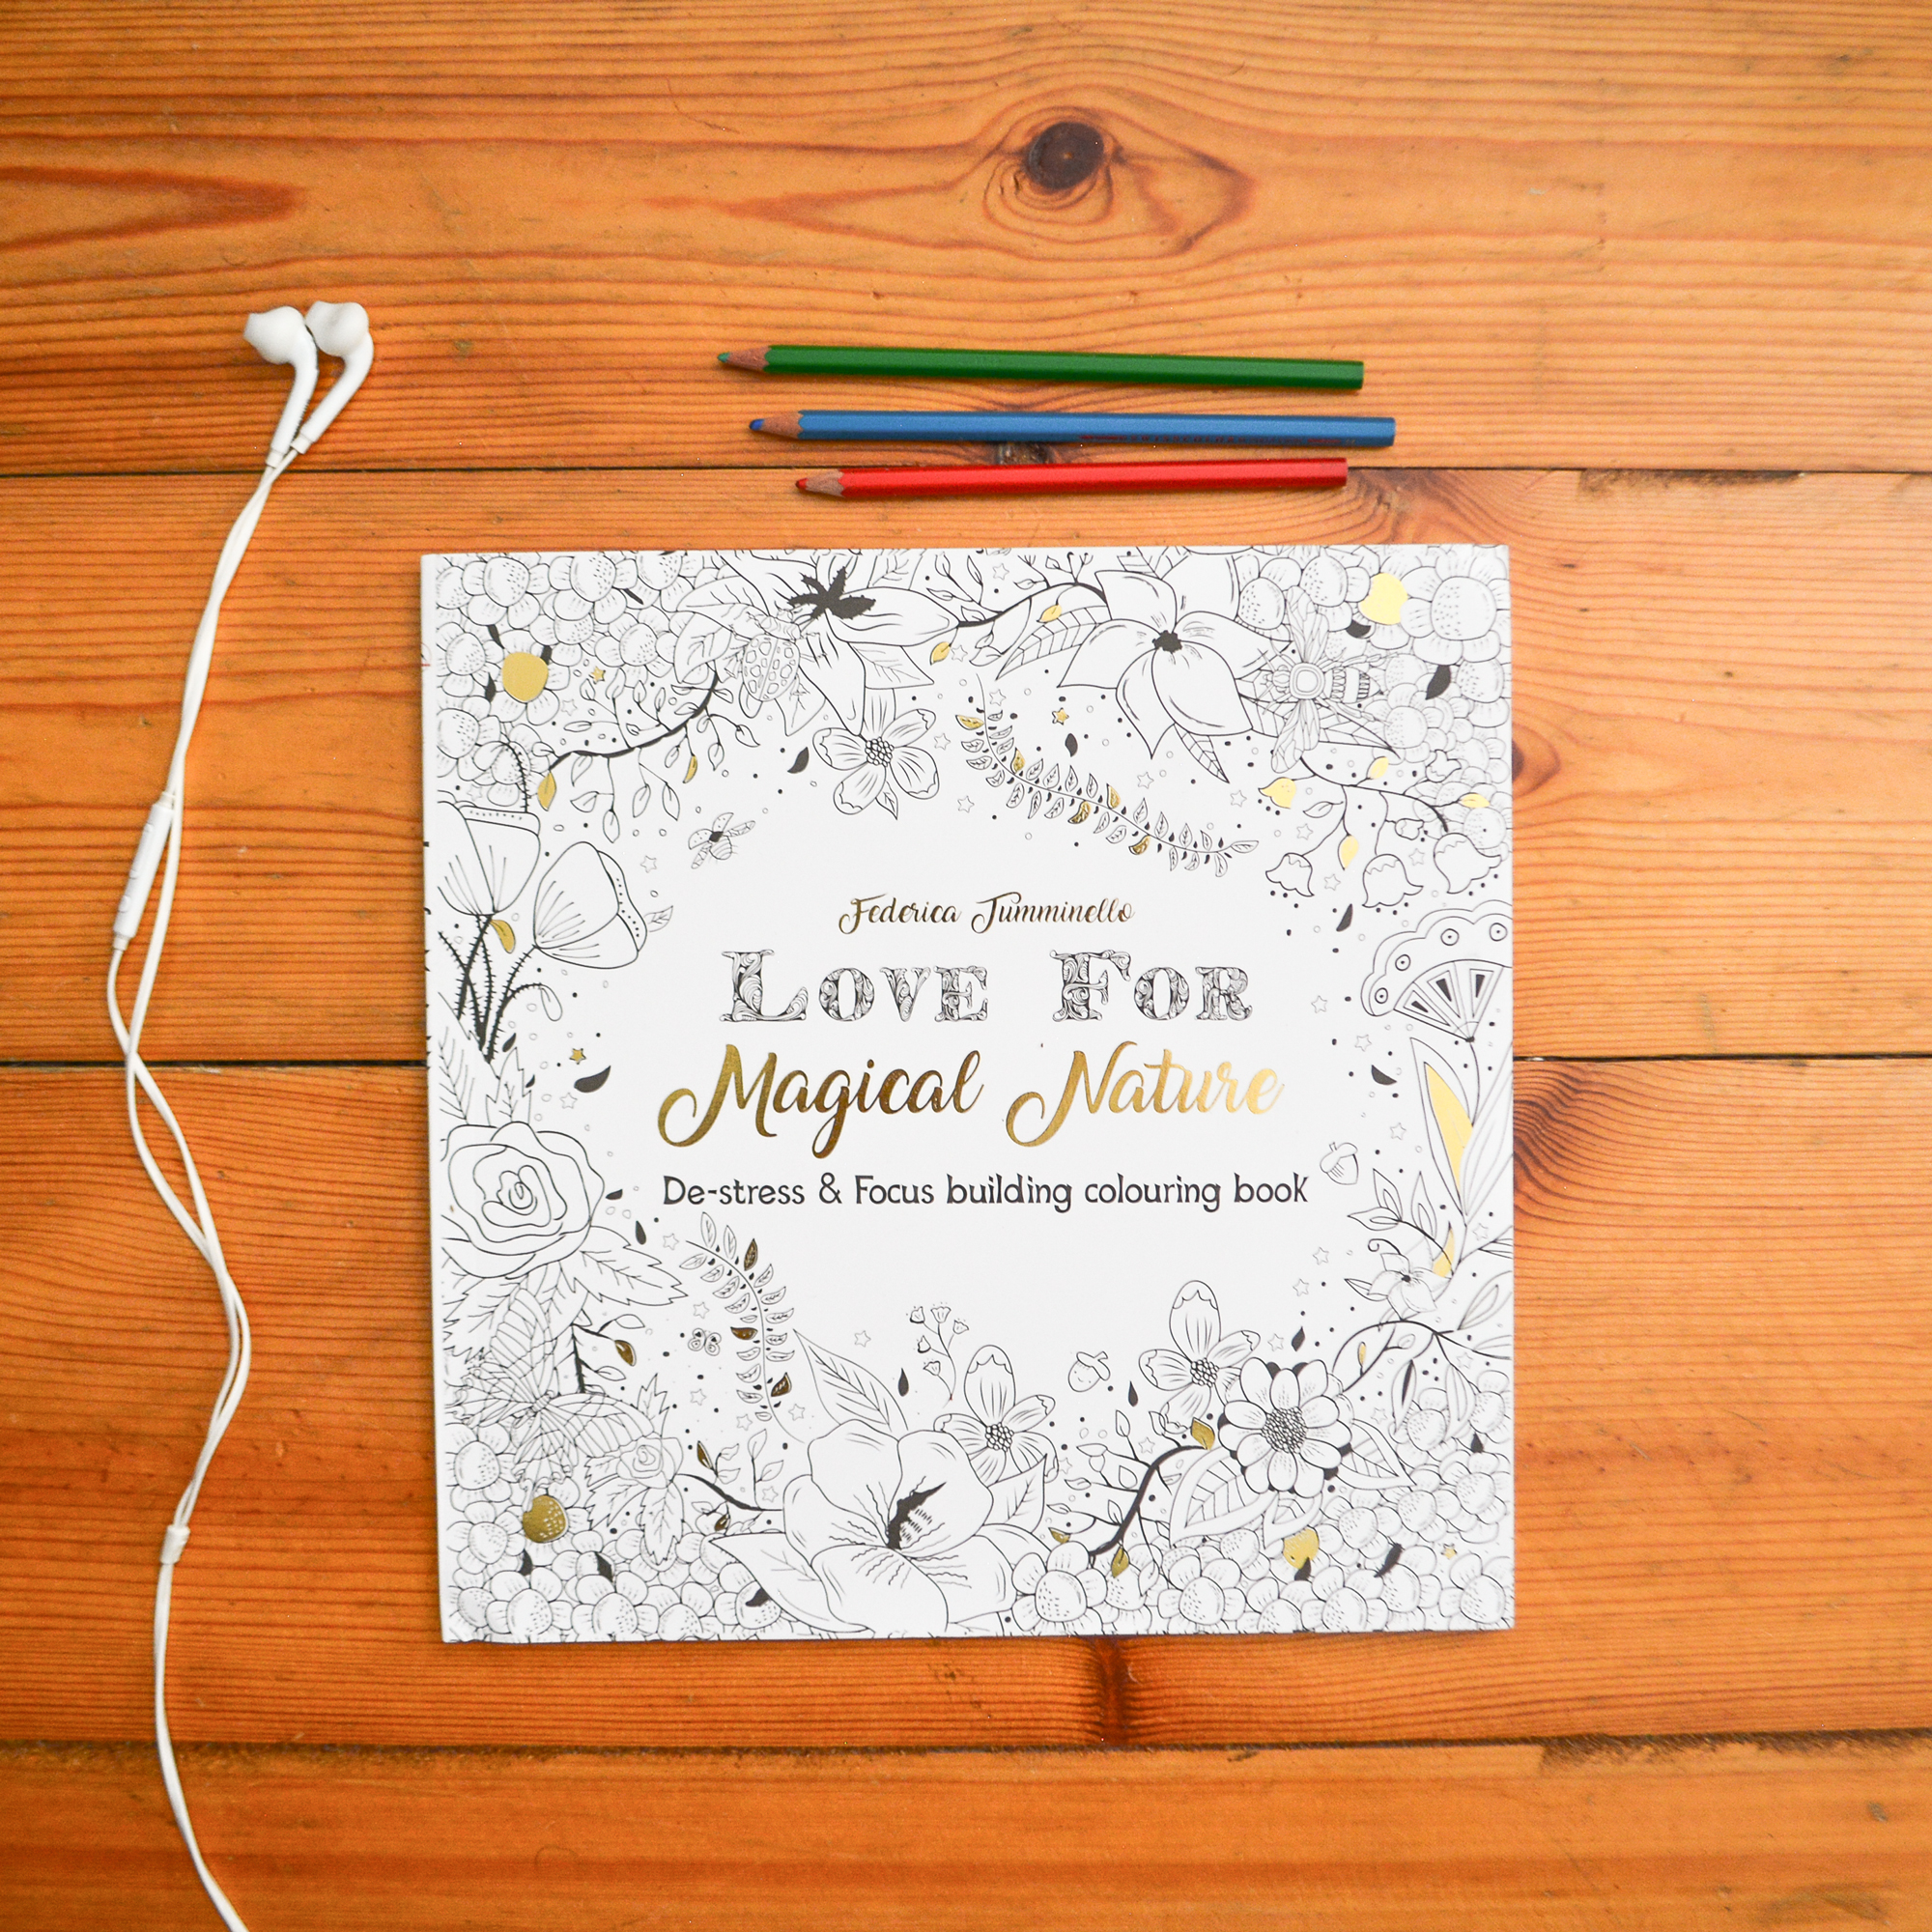 Federica Tumminello
Love For
Magical Nature
De-stress & Focus building colouring book